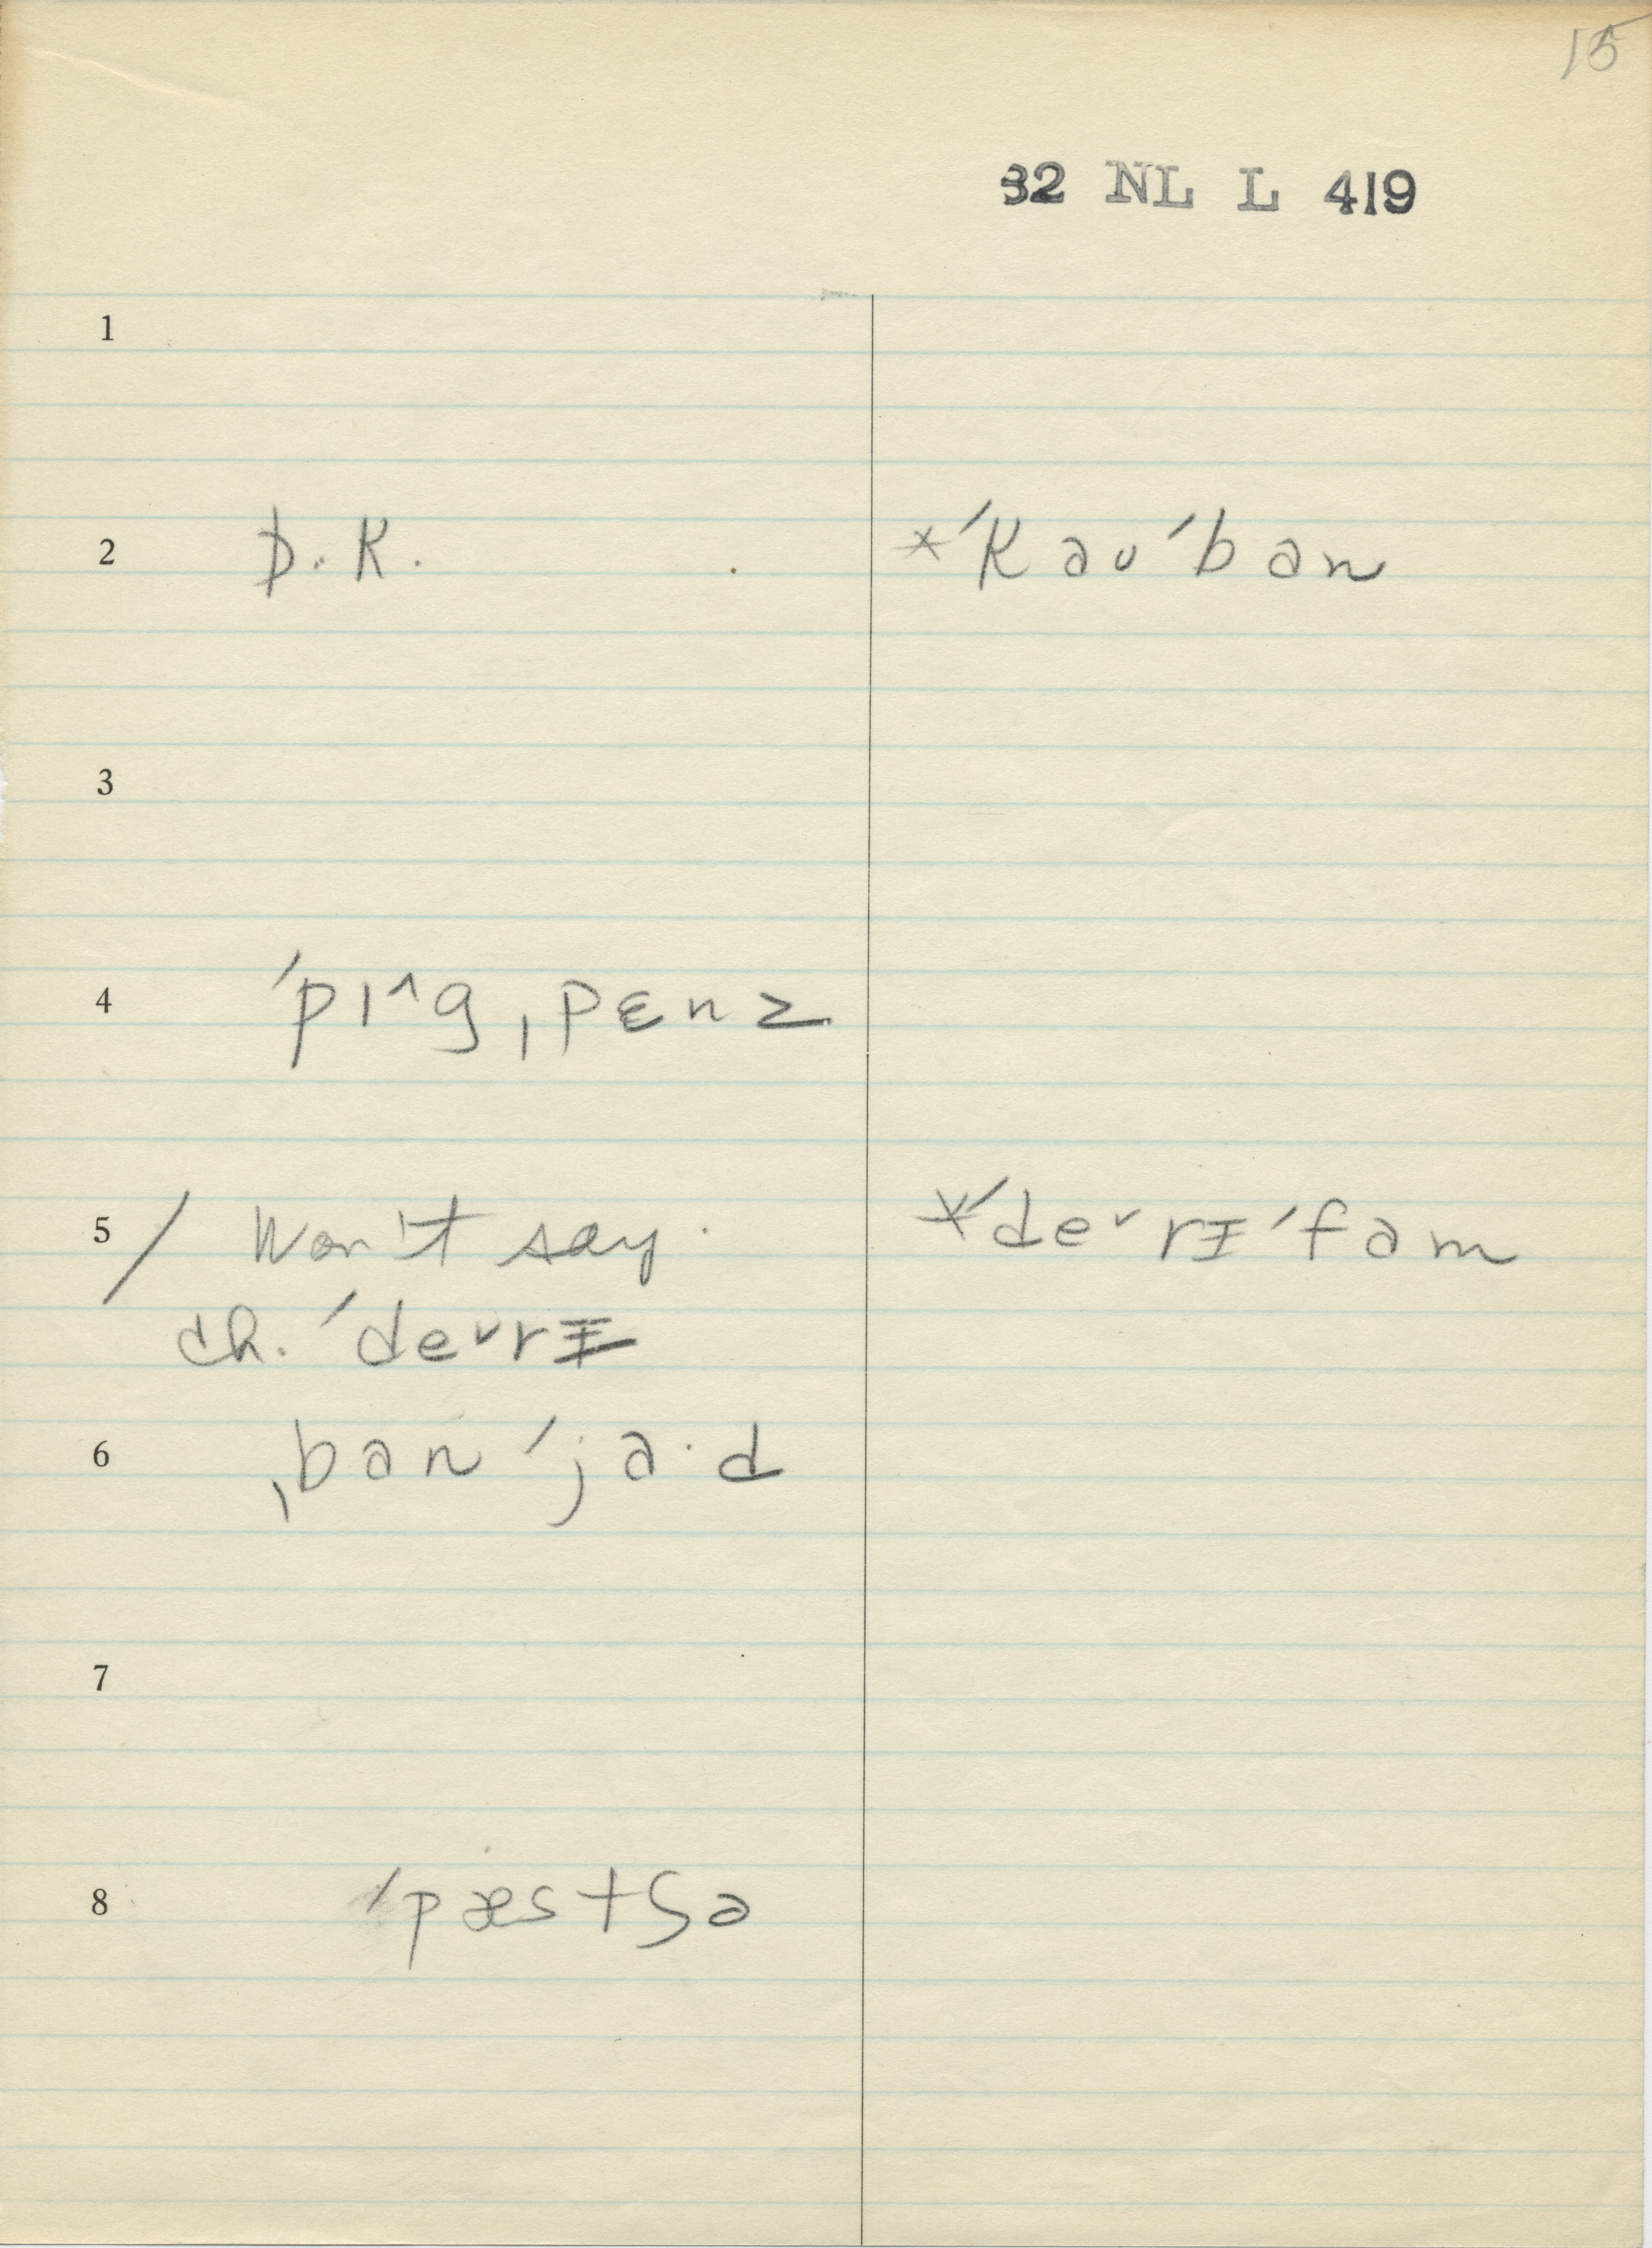 15
32 NL L 419
1
2 D.K. *ˈkaʊˈban
3
4 ˈpɪ^g ˌpɛnz
5 / Won't say. *ˈde˅rɪ̵ˈfam
ch. ˈde˅rɪ̵
6 ˌbanˈja·d
7
8 ˈpæstʃə